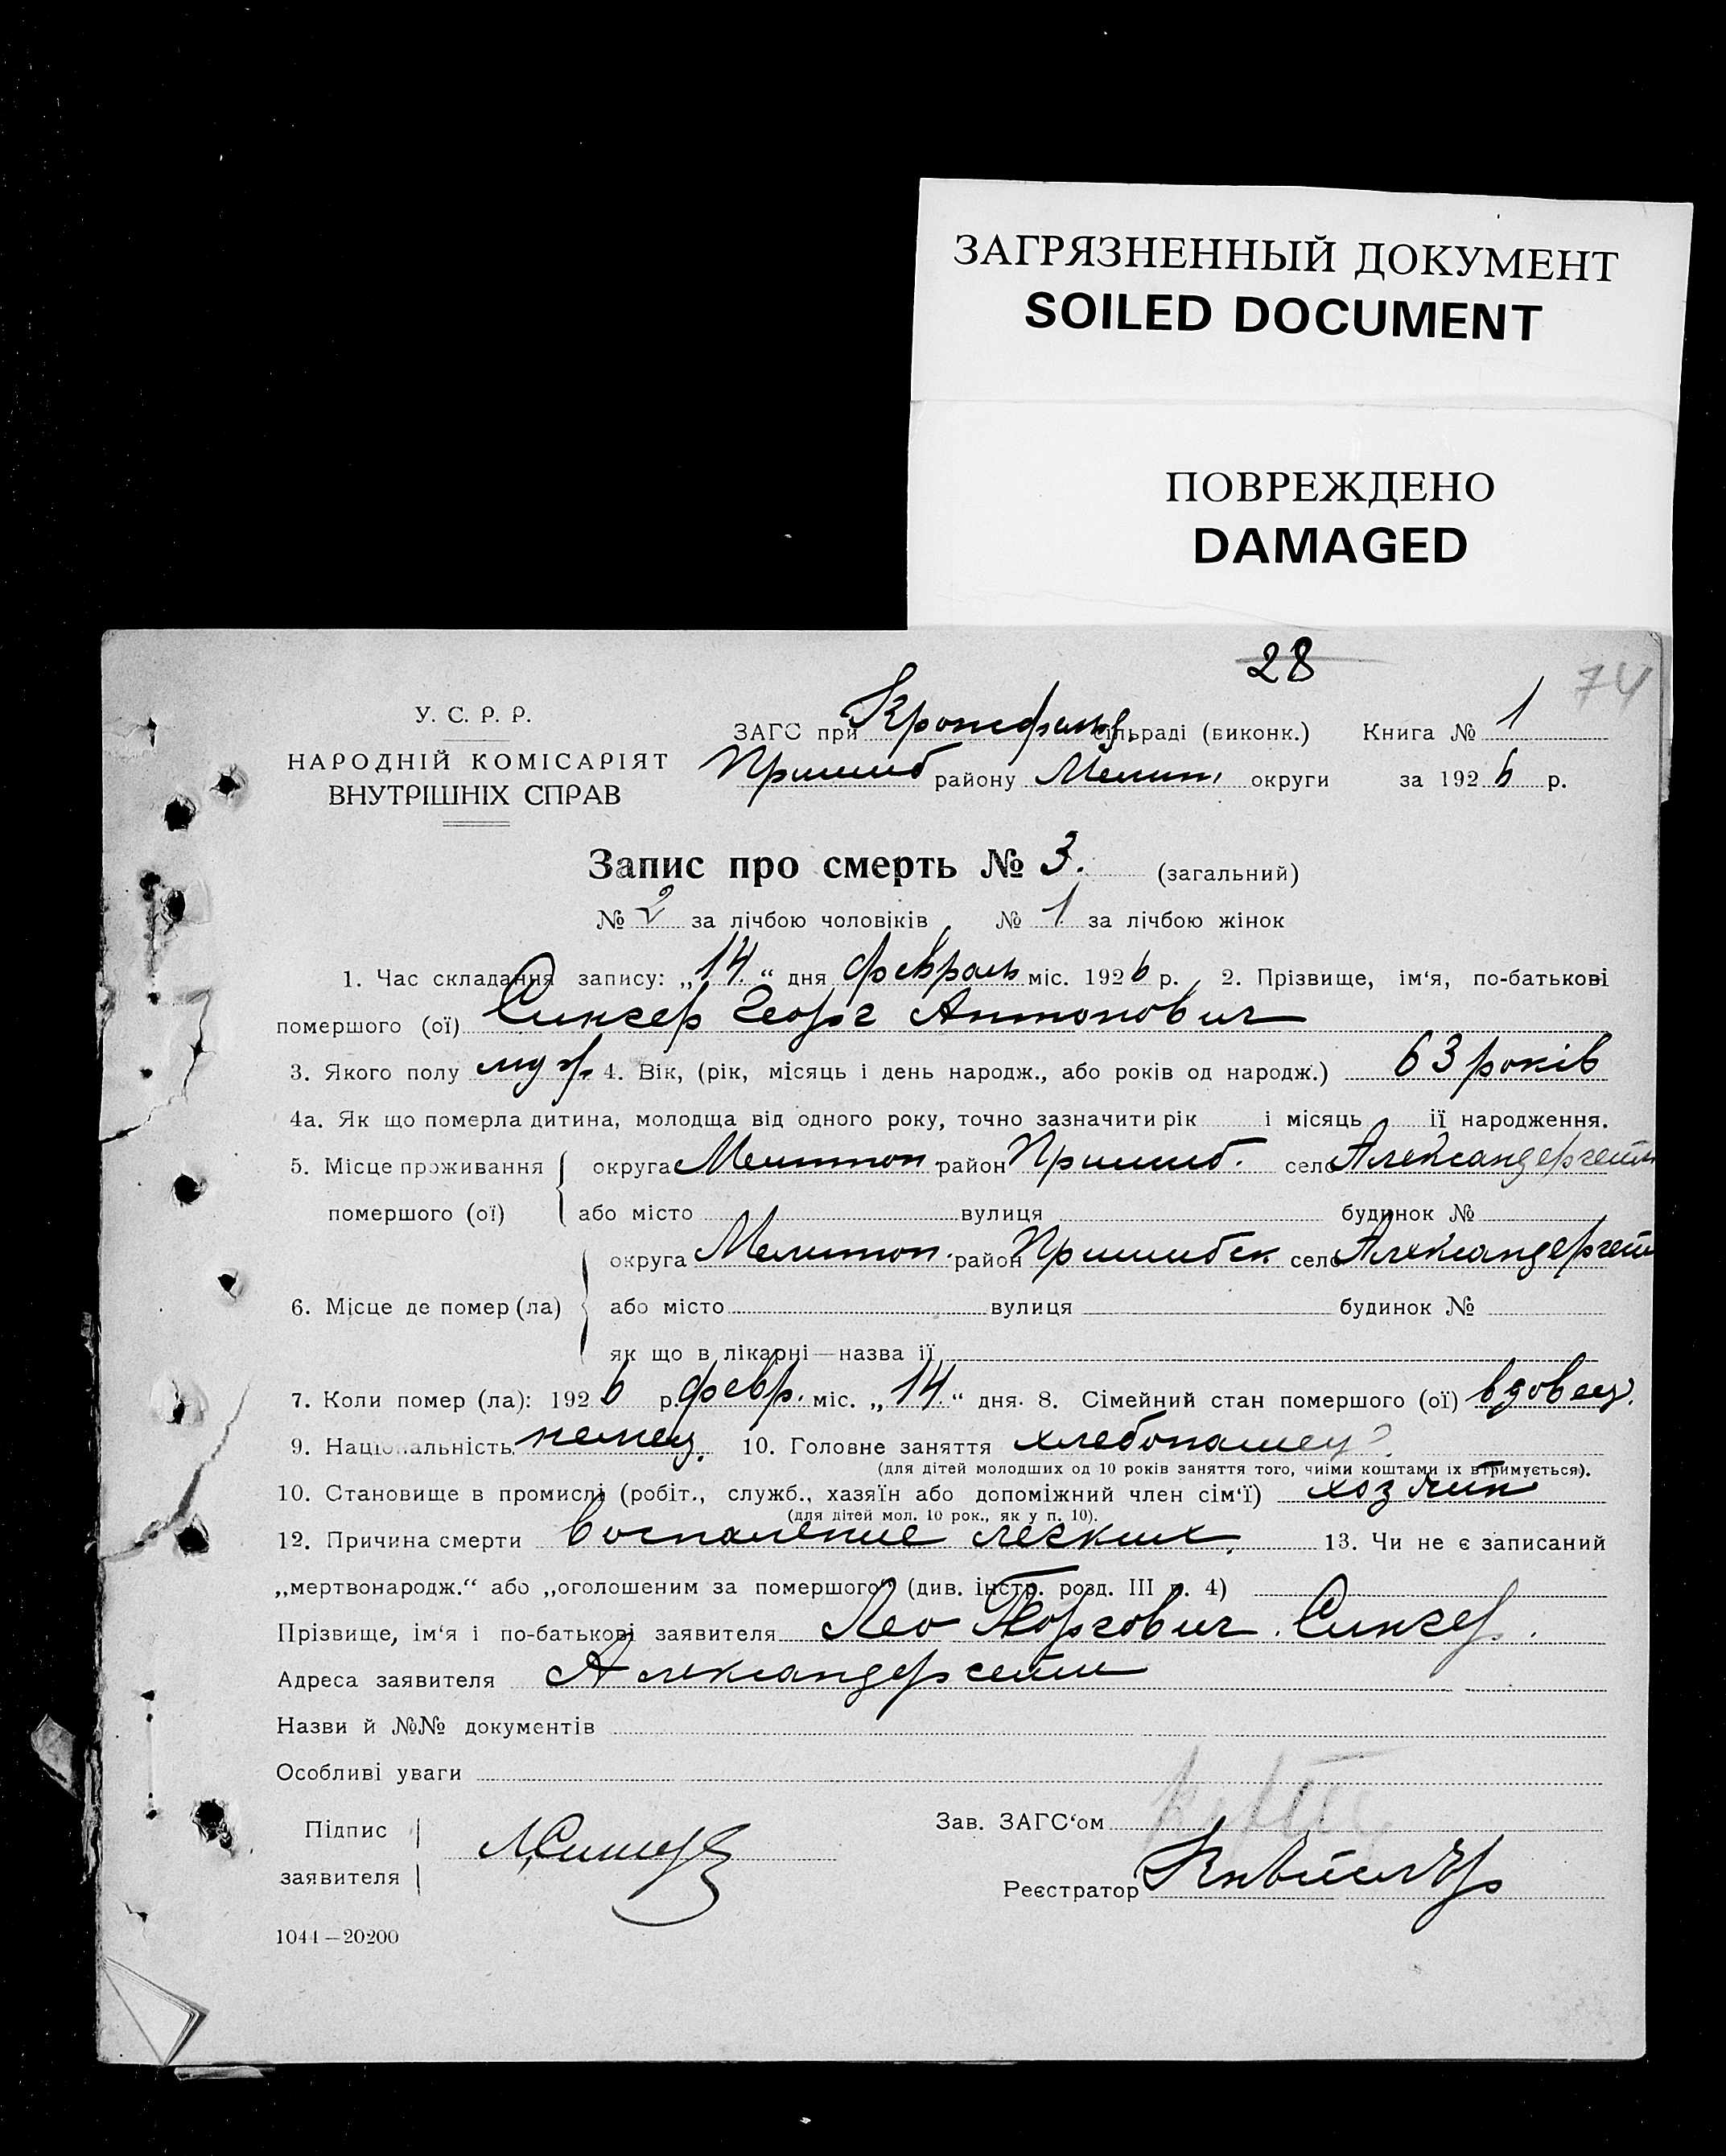 ЗАГРЯЗНЕННЫЙ ДОКУМЕНТ
SOILED DOCUMENT
ПОВРЕЖДЕНО
DAMAGED
28
74
У. С. Р. Р.
НАРОДНІЙ КОМІСАРІЯТ
ВНУТРІШНІХ СПРАВ
ЗАГС при Кронсфельд. сільраді (виконк.) Книга № 1
Пришиб району Мелит. округи за 1926 р.
Запис про смерть № 3. (загальний)
№ 2 за лічбою чоловіків № 1 за лічбою жінок
1. Час складання запису: „14.“ дня февраль міс. 1926 р. 2. Прізвище, ім'я, по-батькові
помершого (ої) Сингер Георг Антонович
3. Якого полу муж. 4. Вік, (рік, місяць і день народж., або років од народж.) 63 років
4а. Як що померла дитина, молодща від одного року, точно зазначити рік і місяць її народження.
5. Місце проживання округа Мелитоп. район Пришиб. село Александергейм
помершого (ої) або місто вулиця будинок №
округа Мелитоп. район Пришибск село Александергейм
6. Місце де помер (ла) або місто вулиця будинок №
як що в лікарні—назва її
7. Коли помер (ла): 1926 р. февр. міс. „14.“ дня. 8. Сімейний стан помершого (ої) вдовец.
9. Національність немец. 10. Головне заняття хлебопашец.
(для дітей молодших од 10 років заняття того, чиїми коштами їх втримується).
10. Становище в промислі (робіт., служб., хазяїн або допоміжний член сім'ї) хозяин
(для дітей мол. 10 рок., як у п. 10).
12. Причина смерти Воспаление легких. 13. Чи не є записаний
„мертвонародж.“ або „оголошеним за помершого“ (див. інстр. розд. III п. 4)
Прізвище, ім'я і по-батькові заявителя Лео Георгович Сингер.
Адреса заявителя Александергейм
Назви й №№ документів
Особливі уваги
Підпис
заявителя
Зав. ЗАГС'ом
Реєстратор
1044—20200